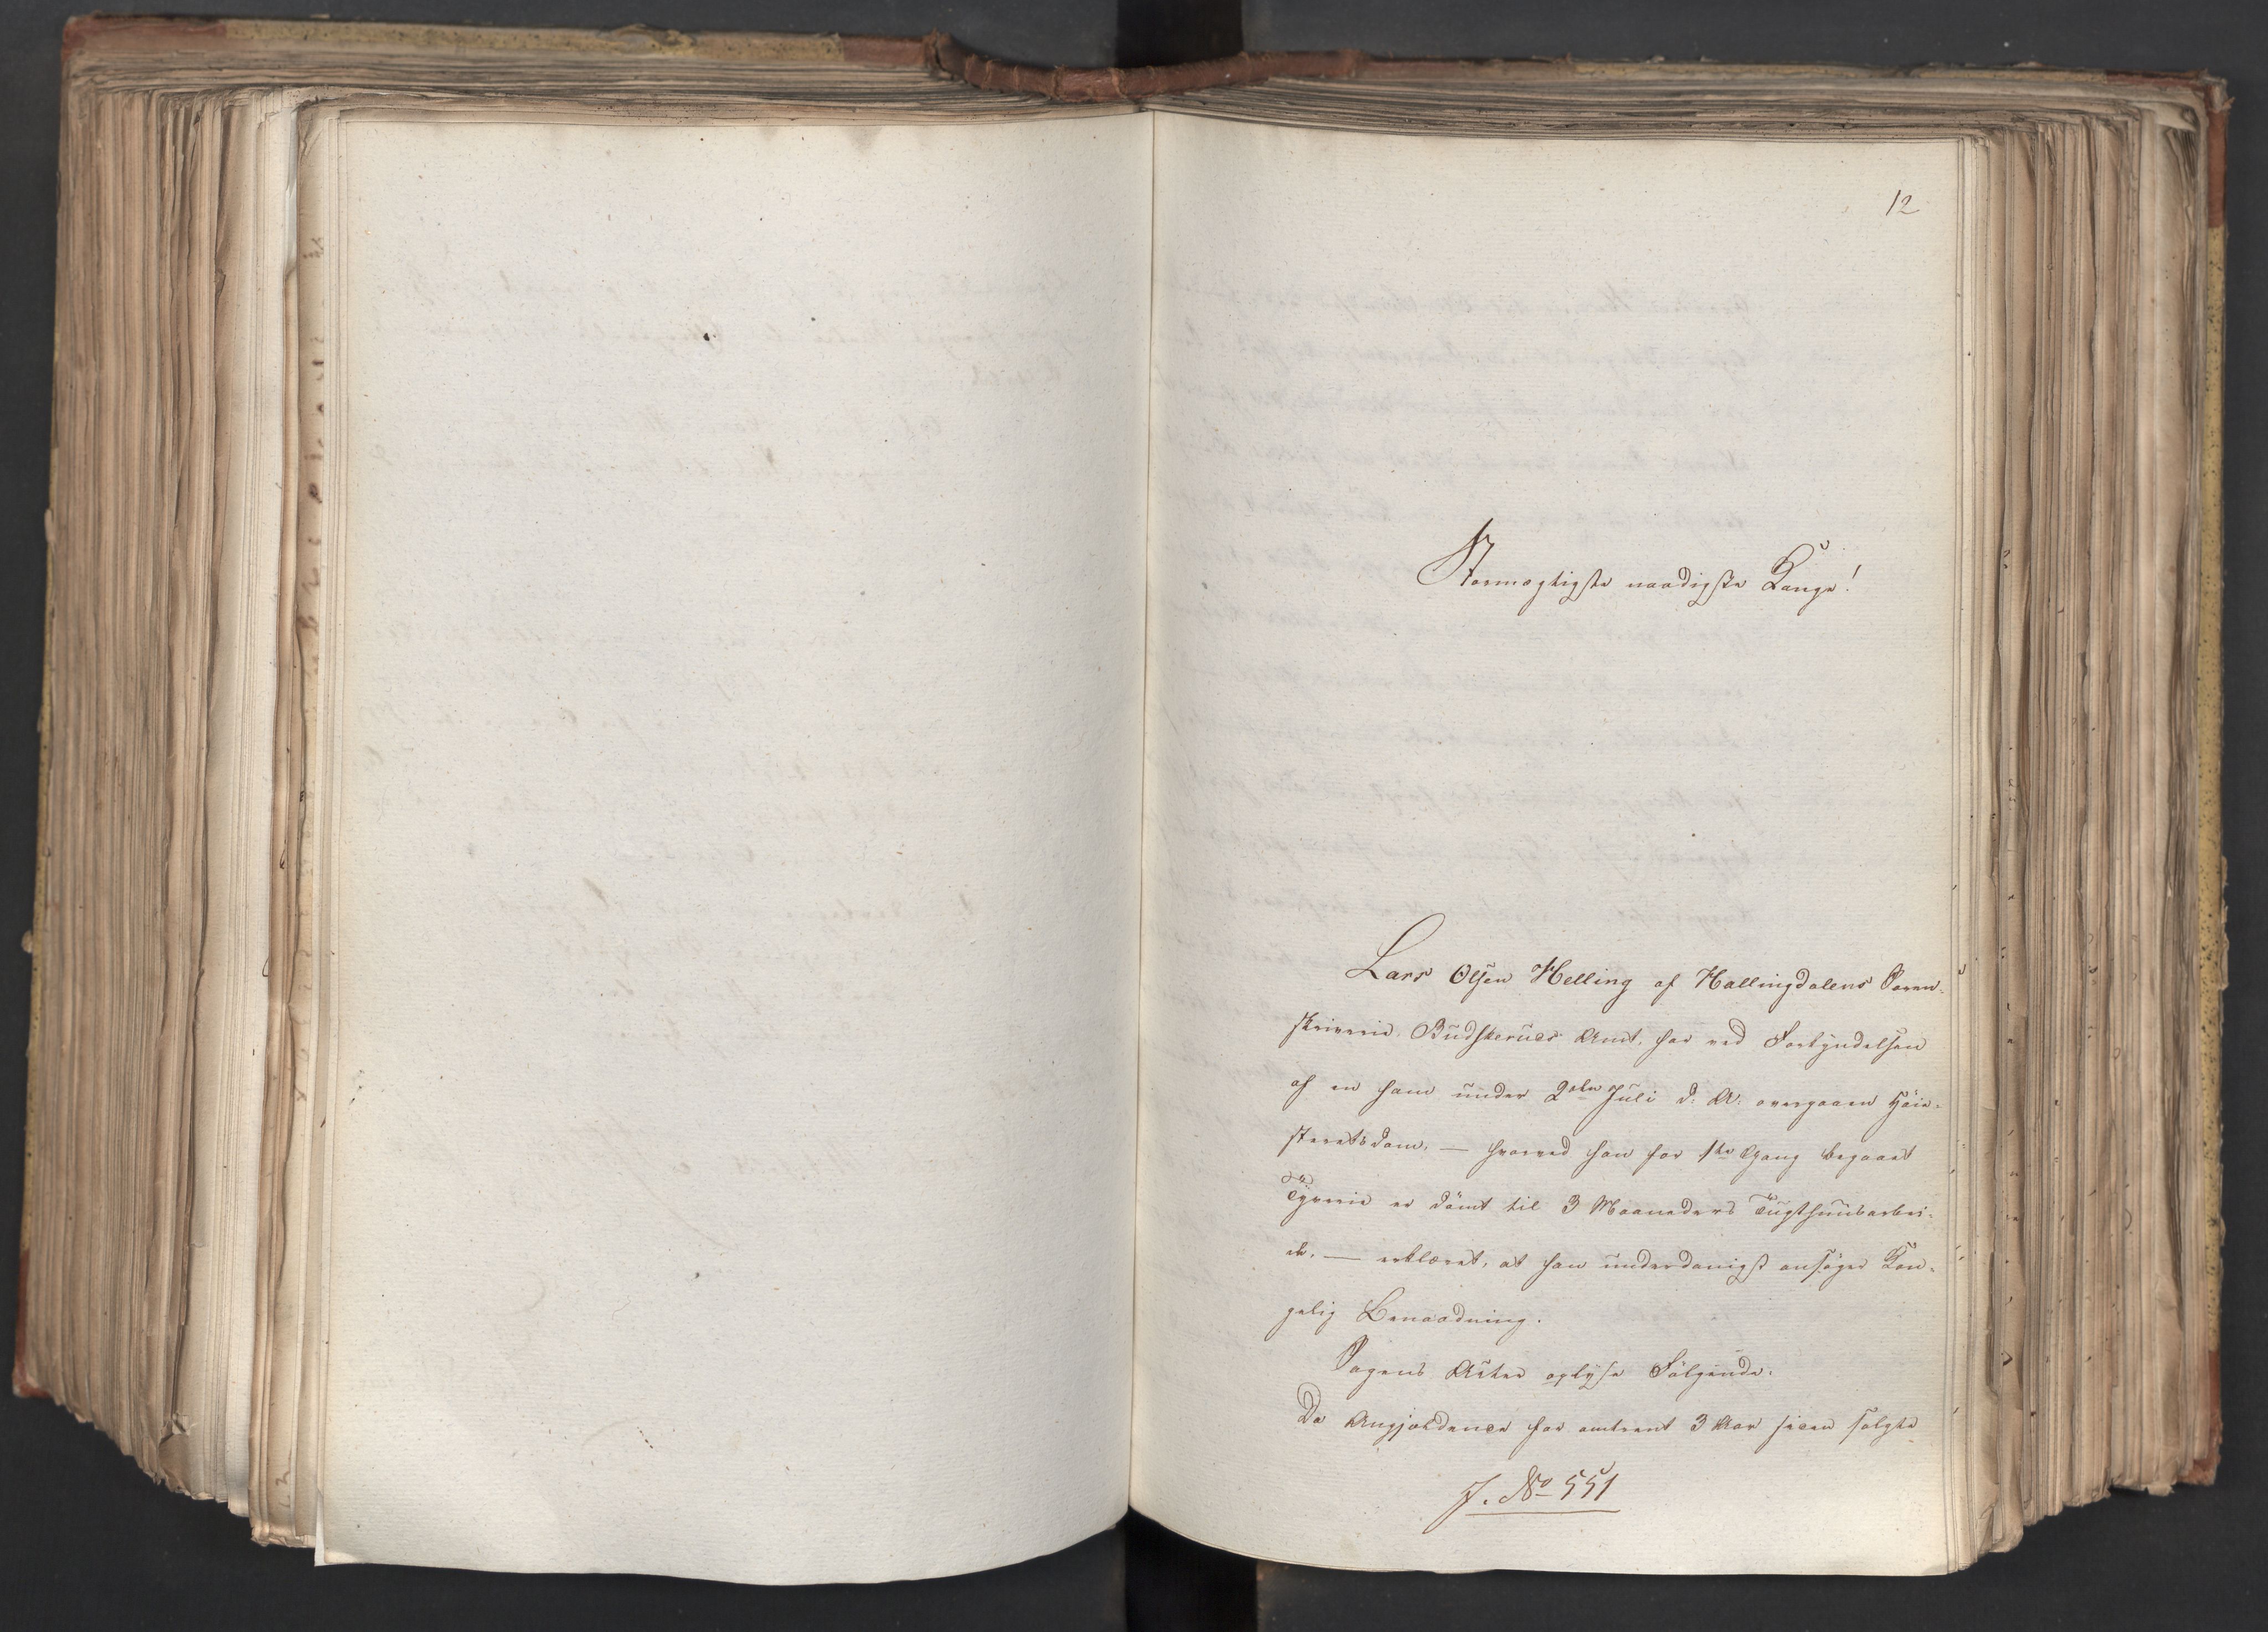 12
Stormægtigste naadigste Konge!
Lars Olsen Helling af Hallingdalens Soren-
skriverie, Budskeruds Amt, har ved Forkyndelsen
af en ham under 2den Juli d: A: overgaaen Höie-
steretsdom, — hvorved han for 1ste Gang begaaet
Tyverie er dömt til 3 Maaneders Tugthuusarbei-
de, — erklæret, at han underdanigst ansöger Kon-
gelig Benaadning.
Sagens Acter oplyse Fölgende:
Da Angjældende for omtrent 3 Aar siden solgte
J. No 551